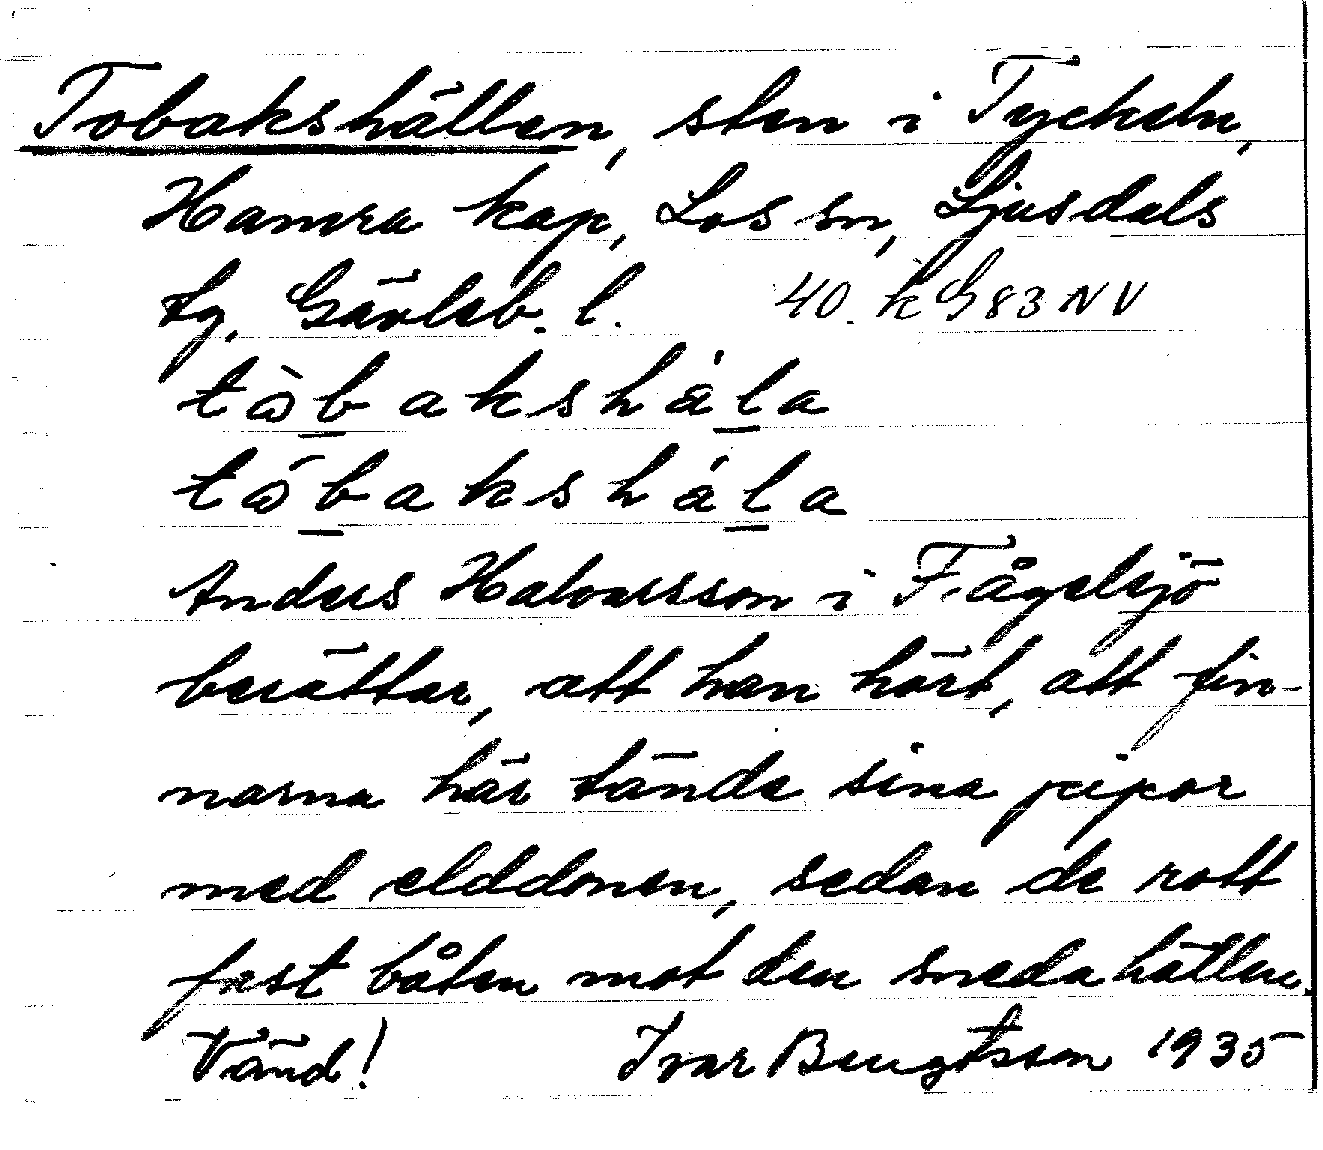 Tobakshällen, sten i Tyckeln,
Hamra kap, Los sn, Ljusdals
tg. Gävleb. l. 40. k G 83 NV
tò̱bakshá̱la
tó̱bakshá̱la
Anders Halvarsson i Fågelsjö
berättar, att han hört, att fin-
narna här tände sina pipor
med elddonen, sedan de rott
fast båten mot den sneda hällen.
Vänd! Ivar Bengtsson 1935